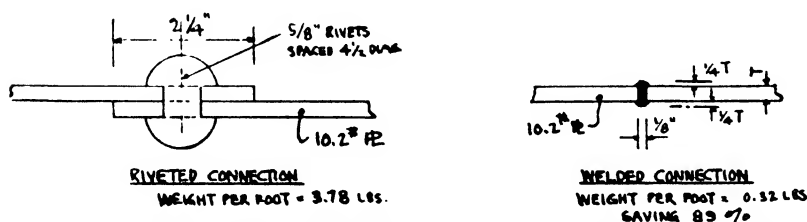 2 1/4"
5/8" RIVETS
SPACED 4 1/2 DIAM
10.2# PL
RIVETED CONNECTION
WEIGHT PER FOOT = 3.78 LBS.
1/4 T
T
10.2# PL
1/8"
1/4 T
WELDED CONNECTION
WEIGHT PER FOOT = 0.32 LBS
SAVING 89 %